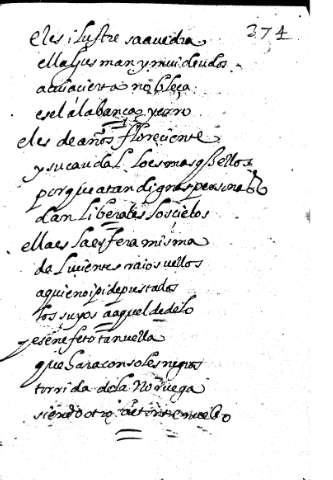 374
el es ilustre saauedra
ella Gusman y mui deudos
a cuia cierta nobleça
es el alabança yerro
el es de años floreciente
y su caudal lo es mas q bellos
porque a tan dignas personas
dan liberales los cielos
ella es la esfera misma
de lucientes raios vellos
a quien o pide prestados
los suyos a aquel de delo
y es en efeto tan vella
que hara con soles negros
torrida de la Noruega
siendo otro